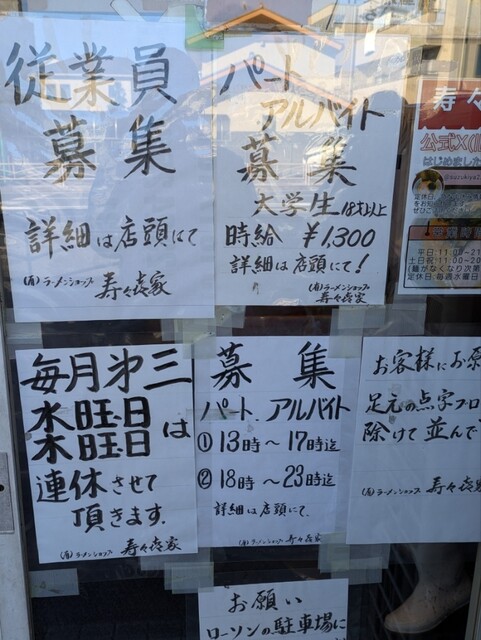 従業員
募集
詳細は店頭にて
(有)ラーメンショップ 寿々㐂家
パート
アルバイト
募集
大学生 18才以上
時給 ¥1,300
詳細は店頭にて!
(有)ラーメンショップ
寿々㐂家
寿々
公式X(旧
はじめました
平日:11:00~21
土日祝:11:00~20
(麺がなくなり次第
定休日:毎週水曜日
毎月第三
水曜日
木曜日は
連休させて
頂きます.
(有)ラーメンショップ 寿々㐂家
募集
パート.アルバイト
① 13時~17時迄
② 18時~23時迄
詳細は店頭にて.
(有)ラーメンショップ 寿々㐂家
お客様にお願
足元の点字フロ
除けて並んで
(有)ラーメンショップ 寿々㐂家
お願い
ローソンの駐車場に